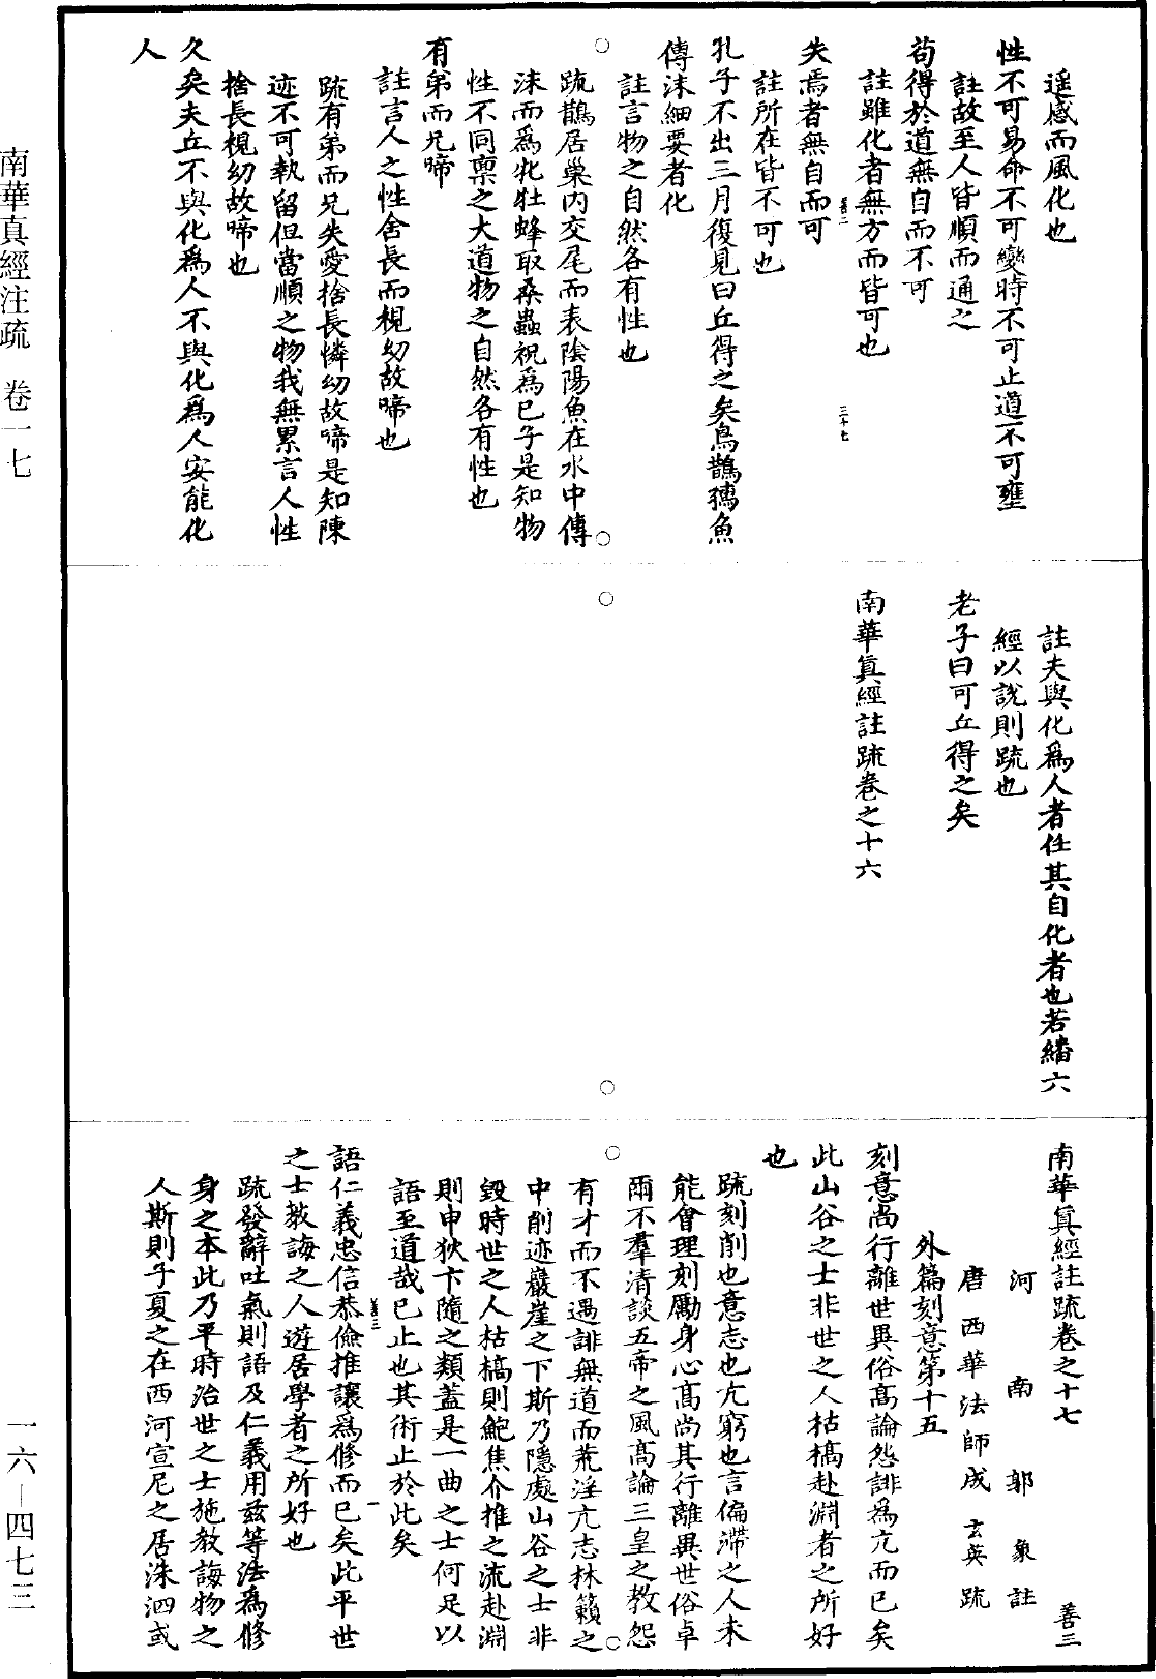 遥感而風化也
性不可易命不可變時不可止道不可壅
註故至人皆順而通之
苟得於道無自而不可
註雖化者無方而皆可也
善二
三十七
失焉者無自而可
註所在皆不可也
孔子不出三月復見曰丘得之矣烏鵲孺魚
傅沫細要者化
註言物之自然各有性也
疏鵲居巢内交尾而表陰陽魚在水中傅
沫而爲牝牡蜂取桑蟲祝爲已子是知物
性不同稟之大道物之自然各有性也
有弟而兄啼
註言人之性舍長而視幼故啼也
疏有弟而兄失愛捨長憐幼故啼是知陳
迹不可執留但當順之物我無累言人性
捨長視幼故啼也
久矣夫丘不與化爲人不與化爲人安能化
人
註夫與化爲人者任其自化者也若繙六
經以説則疏也
老子曰可丘得之矣
南華真經註疏卷之十六
南華真經註疏卷之十七
善三
河南郭象註
唐西華法師成玄英疏
外篇刻意第十五
刻意尚行離世異俗高論怨誹爲亢而已矣
此山谷之士非世之人枯槁赴淵者之所好
也
疏刻削也意志也亢窮也言偏滯之人未
能會理刻勵身心高尚其行離異世俗卓
爾不羣清談五帝之風高論三皇之教怨
有才而不遇誹無道而荒淫亢志林籟之
中削迹巖崖之下斯乃隱處山谷之士非
毀時世之人枯槁則鮑焦介推之流赴淵
則申狄卞隨之類蓋是一曲之士何足以
語至道哉已止也其術止於此矣
善三
一
語仁義忠信恭儉推讓爲修而已矣此平世
之士教誨之人遊居學者之所好也
疏發辭吐氣則語及仁義用兹等法爲修
身之本此乃平時治世之士施教誨物之
人斯則子夏之在西河宣尼之居洙泗或
南華真經注疏 卷一七
一六—四七三